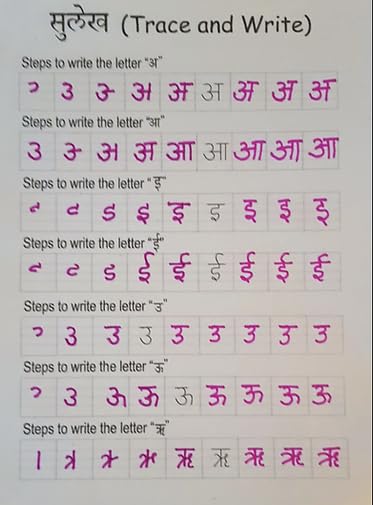 सुलेख (Trace and Write)
Steps to write the letter "अ"
अ अ अ अ अ
Steps to write the letter "आ"
अ आ आ आ आ आ
Steps to write the letter "इ"
इ इ इ इ इ
Steps to write the letter "ई"
ई ई ई ई ई ई
Steps to write the letter "उ"
उ उ उ उ उ उ उ
Steps to write the letter "ऊ"
ऊ ऊ ऊ ऊ ऊ ऊ
Steps to write the letter "ऋ"
ऋ ऋ ऋ ऋ ऋ